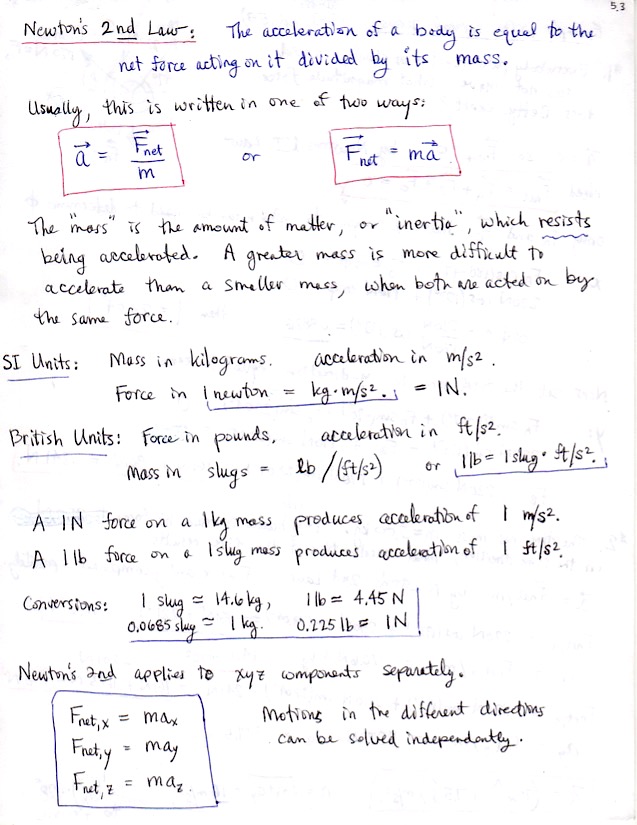 5.3
Newton's 2nd Law: The acceleration of a body is equal to the
net force acting on it divided by its mass.
Usually, this is written in one of two ways:
a⃗ = F⃗net / m or F⃗net = ma⃗
The "mass" is the amount of matter, or "inertia", which resists
being accelerated. A greater mass is more difficult to
accelerate than a smaller mass, when both are acted on by
the same force.
SI Units: Mass in kilograms. acceleration in m/s².
Force in 1 newton = kg·m/s². = 1N.
British Units: Force in pounds. acceleration in ft/s².
Mass in slugs = lb/(ft/s²) or 1 lb = 1 slug · ft/s².
A 1N force on a 1kg mass produces acceleration of 1 m/s².
A 1 lb force on a 1 slug mass produces acceleration of 1 ft/s².
Conversions: 1 slug ≃ 14.6 kg, 1 lb = 4.45 N
0.0685 slug ≃ 1 kg. 0.225 lb = 1N
Newton's 2nd applies to xyz components separately.
Fnet,x = max Motions in the different directions
Fnet,y = may can be solved independently.
Fnet,z = maz.